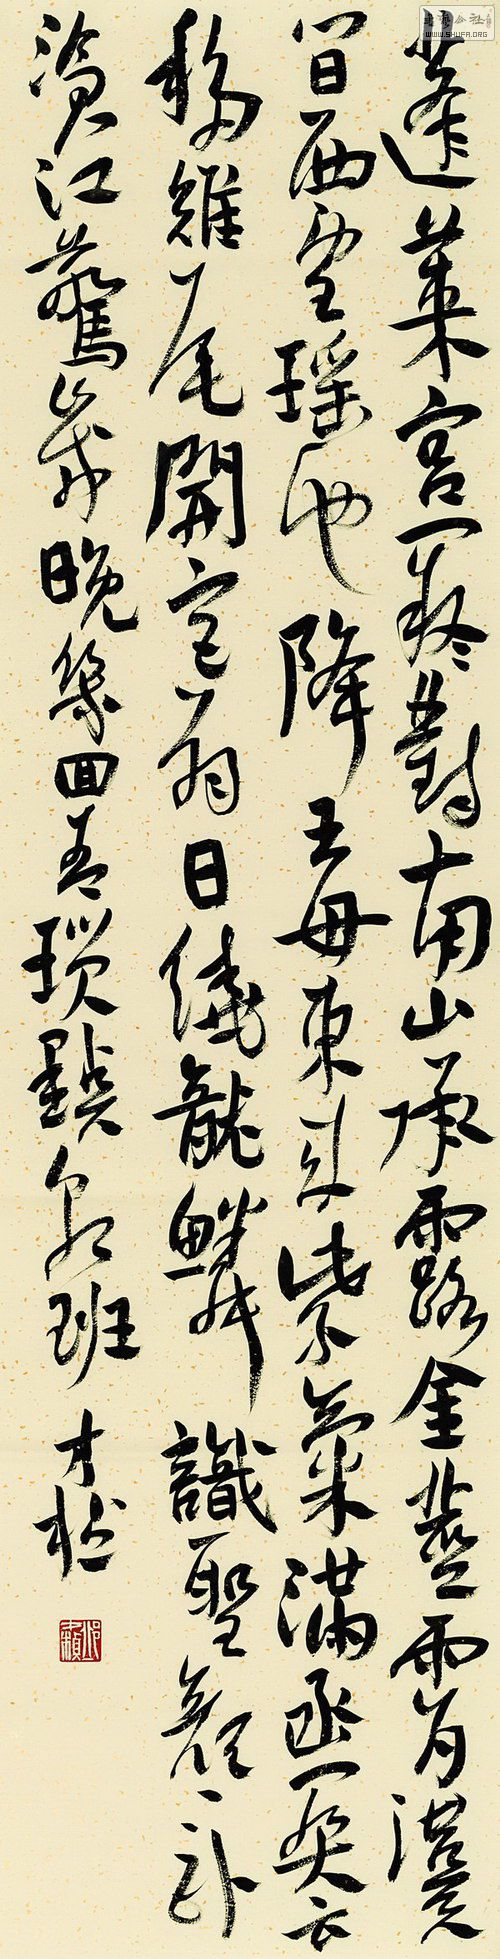 蓬萊宮闕對南山承露金莖霄漢
間西望瑤池降王母東來紫氣滿函關云
移雉尾開宮扇日繞龍鱗識聖顏一臥
滄江驚歲晚幾回青瑣點朝班 才
WWW.SHUFA.ORG